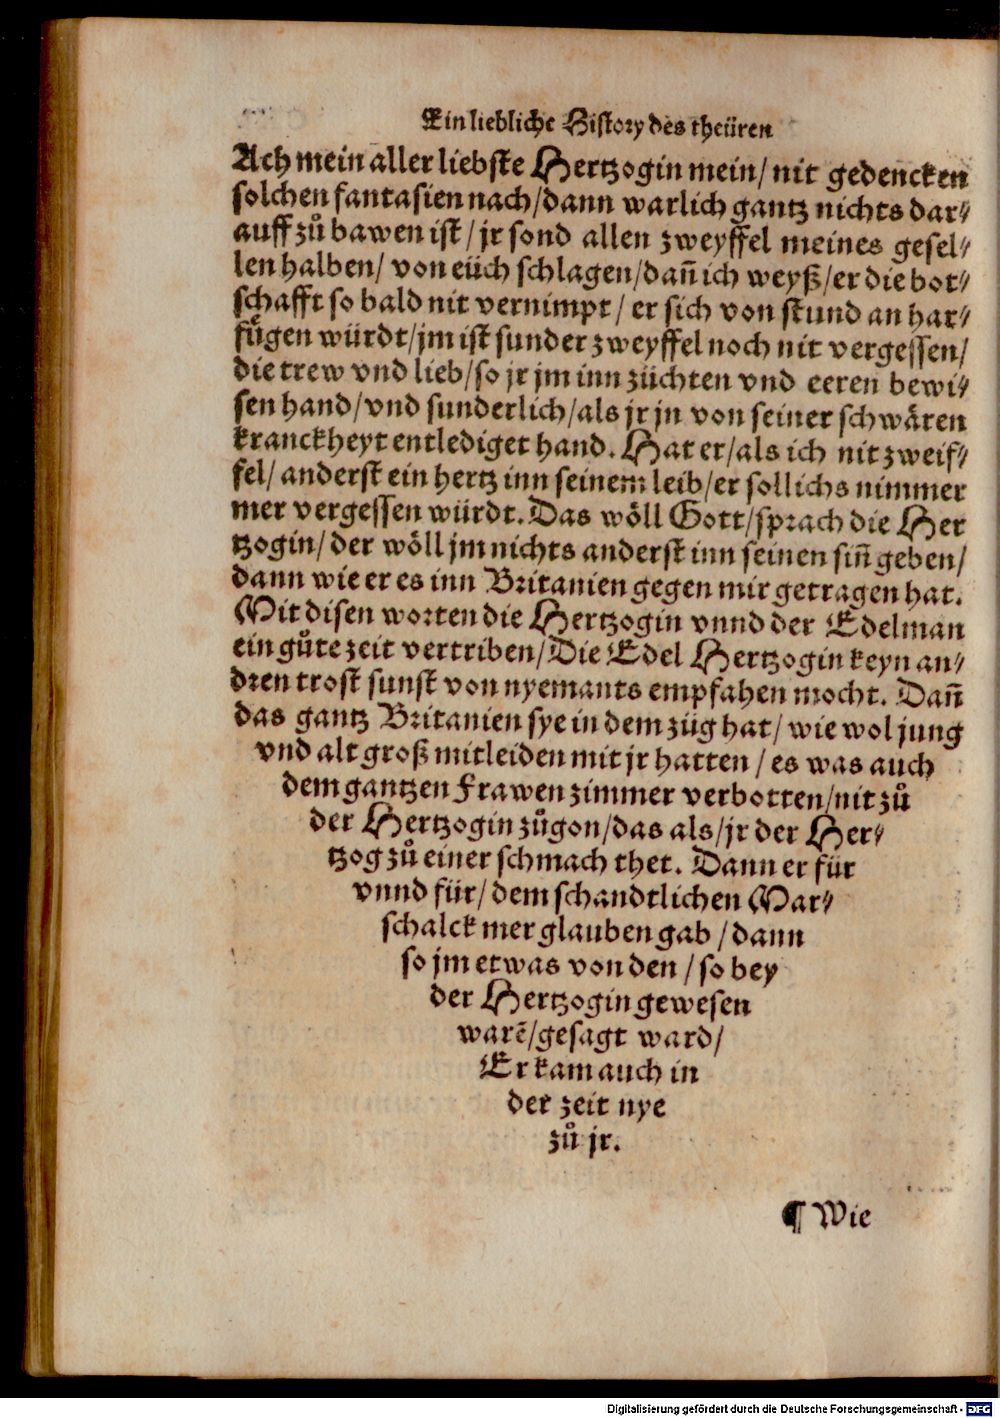 Ein liebliche History des theüren
Ach mein aller liebste Hertzogin mein/ nit gedencken
solchen fantasien nach/dann warlich gantz nichts dar⸗
auff zů bawen ist/ jr sond allen zweyffel meines gesel⸗
len halben/ von eüch schlagen/dañ ich weyß/er die bot⸗
schafft so bald nit vernimpt/ er sich von stund an har⸗
fůgen würdt/jm ist sunder zweyffel noch nit vergessen/
die trew vnd lieb/so jr jm inn züchten vnd eeren bewi⸗
sen hand/vnd sunderlich/als jr jn von seiner schwåren
kranckheyt entlediget hand. Hat er/als ich nit zweif⸗
fel/ anderst ein hertz inn seinem leib/er sollichs nimmer
mer vergessen würdt. Das wöll Gott/sprach die Her
tzogin/ der wöll jm nichts anderst inn seinen siñ geben/
dann wie er es inn Britanien gegen mir getragen hat.
Mit disen worten die Hertzogin vnnd der Edelman
ein gůte zeit vertriben/Die Edel Hertzogin keyn an⸗
dren trost sunst von nyemants empfahen mocht. Dañ
das gantz Britanien sye in dem züg hat/ wie wol jung
vnd alt groß mitleiden mit jr hatten/ es was auch
dem gantzen Frawen zimmer verbotten/nit zů
der Hertzogin zůgon/das als/jr der Her⸗
tzog zů einer schmach thet. Dann er für
vnnd für/ dem schandtlichen Mar⸗
schalck mer glauben gab/dann
so jm etwas von den/so bey
der Hertzogin gewesen
warẽ/gesagt ward/
Er kam auch in
der zeit nye
zů jr.
¶ Wie
Digitalisierung gefördert durch die Deutsche Forschungsgemeinschaft - DFG